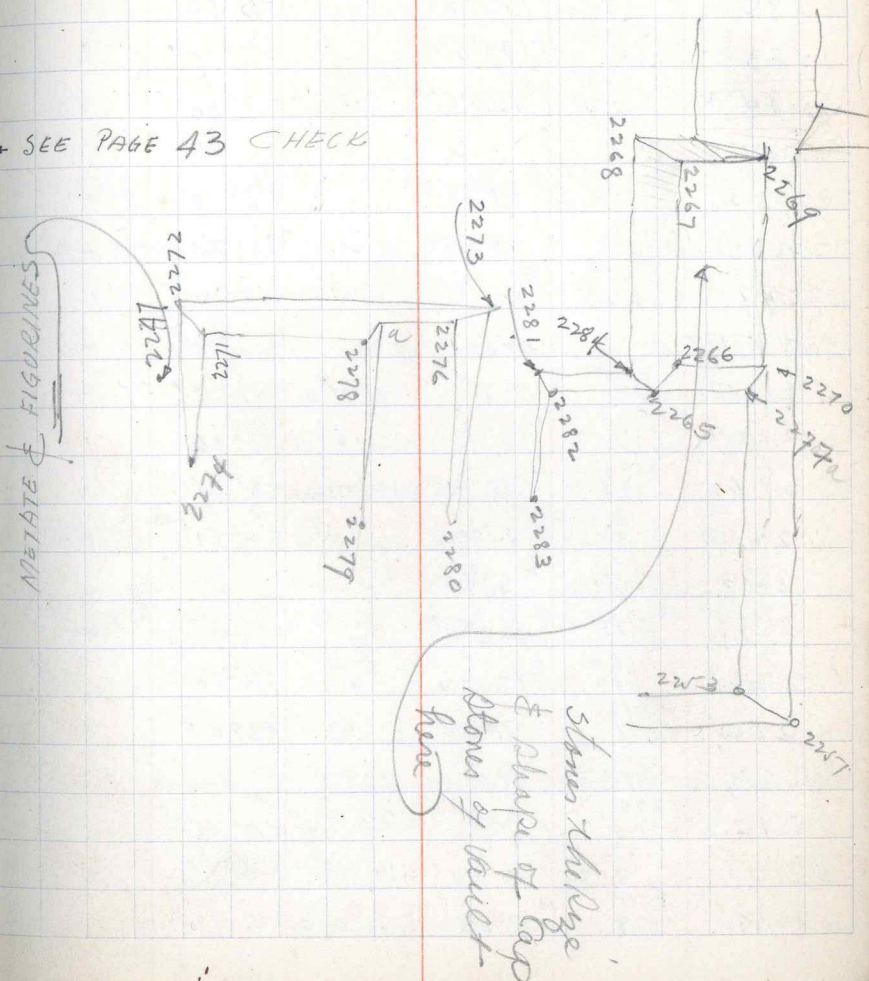 SEE PAGE 43 CHECK
METATE & FIGURINES
2272
2271
2274
2278
a
2276
2273
2279
2280
2281
2282
2283
2284
2268
2267
2269
2266
2265
2270
2277a
2253
2251
Stones the size
& shape of Cap
stones of vault
here